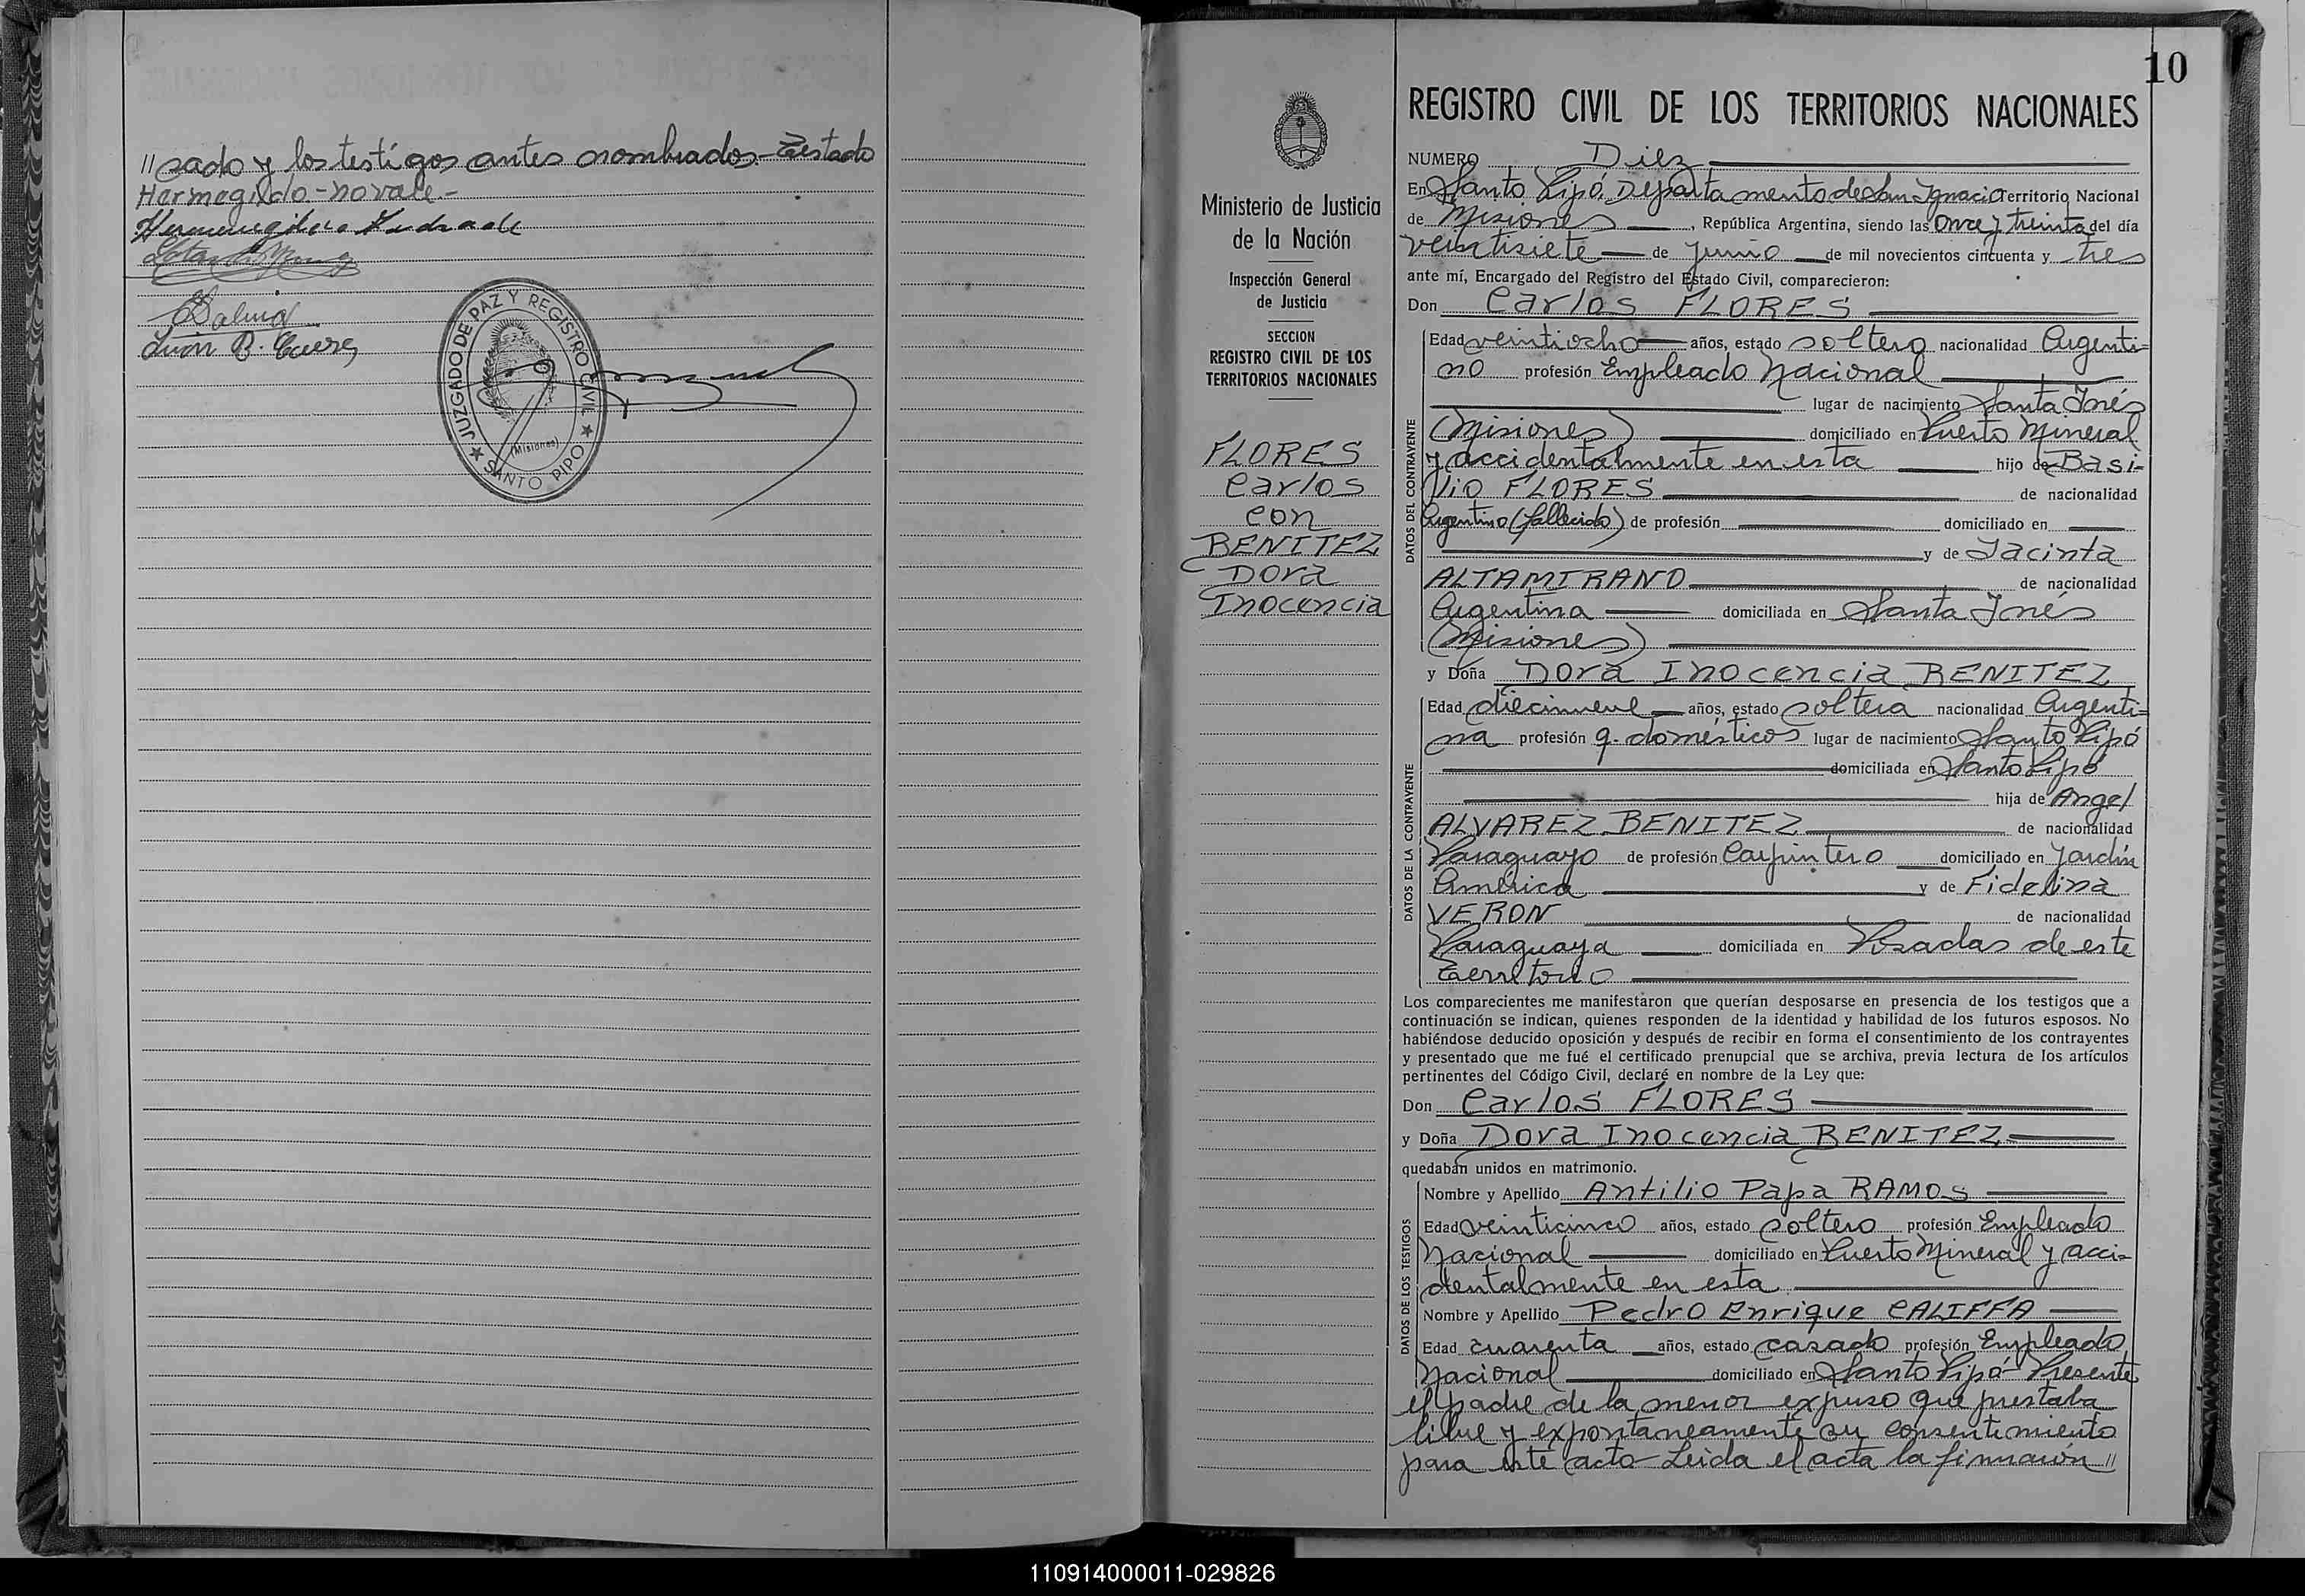 // sado y los testigos antes nombrados - Testado
Hermegildo - no vale. -
JUZGADO DE PAZ Y REGISTRO CIVIL
(Misiones)
SANTO PIPO
10
REGISTRO CIVIL DE LOS TERRITORIOS NACIONALES
Ministerio de Justicia
de la Nación
Inspección General
de Justicia
SECCION
REGISTRO CIVIL DE LOS
TERRITORIOS NACIONALES
FLORES
Carlos
con
BENITEZ
Dora
Inocencia
NUMERO Diez
En Santo Pipó, Departamento de San Ignacio Territorio Nacional
de Misiones, República Argentina, siendo las once y treinta del día
veintisiete de junio de mil novecientos cincuenta y tres
ante mí, Encargado del Registro del Estado Civil, comparecieron:
Don Carlos FLORES
DATOS DEL CONTRAYENTE
Edad veintiocho años, estado soltero nacionalidad Argenti=
no profesión Empleado Nacional
lugar de nacimiento Santa Inés
(Misiones) domiciliado en Puerto Mineral
y accidentalmente en esta hijo de Basi-
lio FLORES de nacionalidad
Argentino (fallecido) de profesión domiciliado en
y de Jacinta
ALTAMIRANO de nacionalidad
Argentina domiciliada en Santa Inés
(Misiones)
y Doña Dora Inocencia BENITEZ
DATOS DE LA CONTRAYENTE
Edad diecinueve años, estado soltera nacionalidad Argenti=
na profesión q. domésticos lugar de nacimiento Santo Pipó
domiciliada en Santo Pipó
hija de Angel
ALVAREZ BENITEZ de nacionalidad
Paraguayo de profesión Carpintero domiciliado en Jardín
América y de Fidelina
VERON de nacionalidad
Paraguaya domiciliada en Posadas de este
Territorio
Los comparecientes me manifestaron que querían desposarse en presencia de los testigos que a
continuación se indican, quienes responden de la identidad y habilidad de los futuros esposos. No
habiéndose deducido oposición y después de recibir en forma el consentimiento de los contrayentes
y presentado que me fué el certificado prenupcial que se archiva, previa lectura de los artículos
pertinentes del Código Civil, declaré en nombre de la Ley que:
Don Carlos FLORES
y Doña Dora Inocencia BENITEZ
quedaban unidos en matrimonio.
DATOS DE LOS TESTIGOS
Nombre y Apellido Antilio Papa RAMOS
Edad veinticinco años, estado soltero profesión Empleado
Nacional domiciliado en Puerto Mineral y acci=
dentalmente en esta
Nombre y Apellido Pedro Enrique CALIFFA
Edad cuarenta años, estado casado profesión Empleado
Nacional domiciliado en Santo Pipó - Presente
el padre de la menor expuso que prestaba
libre y expontaneamente su consentimiento
para este acto - Leida el acta la firmaron //
110914000011-029826